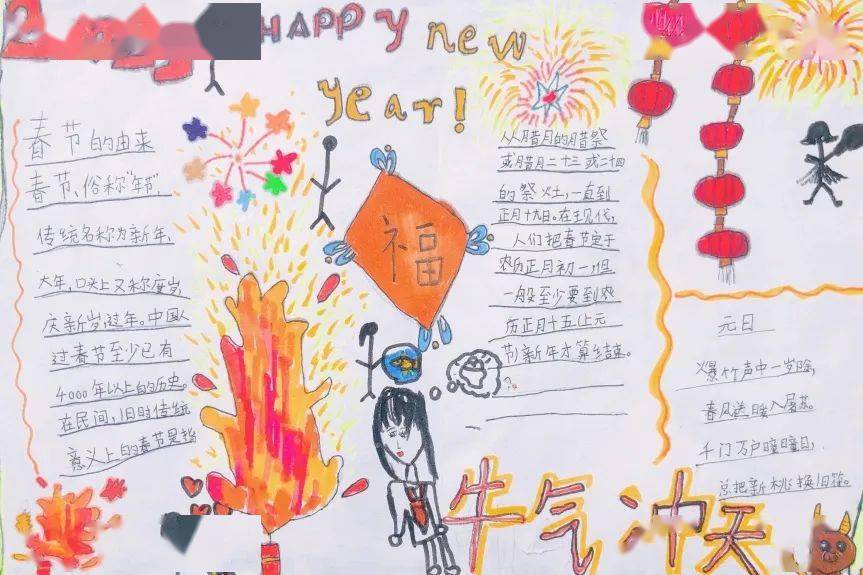 HAPPY new
year!
春节的由来
春节、俗称“年节”，
传统名称为新年、
大年，口头上又称度岁、
庆新岁、过年。中国人
过春节至少已有
4000年以上的历史。
在民间，旧时传统
意义上的春节是指
福
从腊月的腊祭
或腊月二十三或二十四
的祭灶，一直到
正月十九。在现代，
人们把春节定于
农历正月初一，但
一般至少要到农
历正月十五（上元
节）新年才算结束。
元日
爆竹声中一岁除，
春风送暖入屠苏。
千门万户曈曈日，
总把新桃换旧符。
牛气冲天